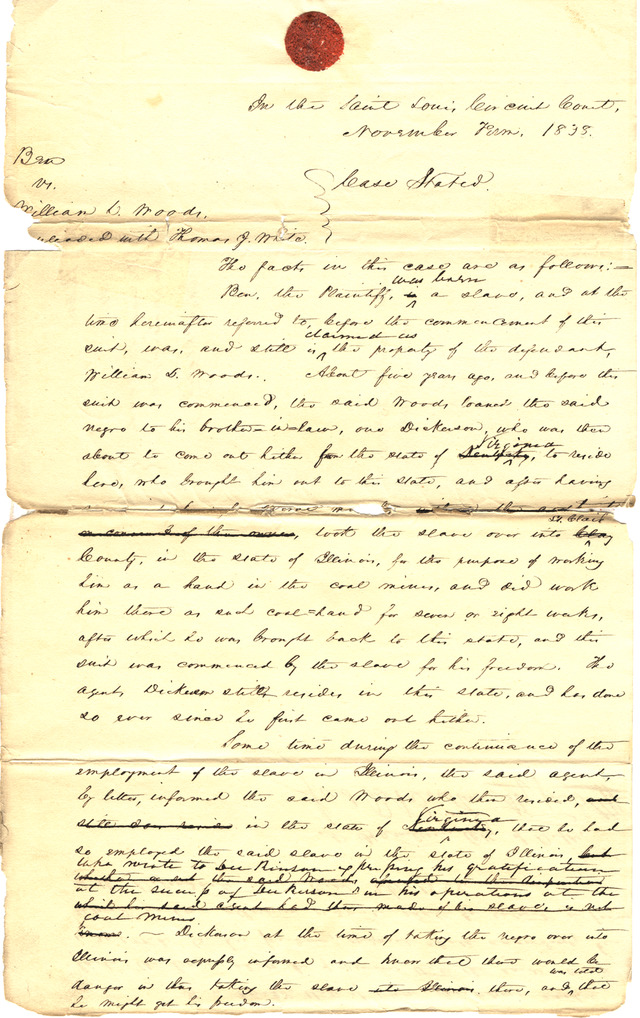 In the Saint Louis Circuit Court,
November Term, 1838.
Ben
vs.
William L. Woods,
with Thomas J. White.
Case Stated.
The facts in this case are as follows:—
was born
Ben, the Plaintiff, is a slave, and at the
time hereinafter referred to, before the commencement of this
claimed as
suit, was, and still is the property of the defendant,
William L. Woods. About five years ago, and before this
suit was commenced, the said Woods loaned the said
negro to his brother-in-law, one Dickerson, who was then
Virginia
about to come out hither from the state of Kentucky, to reside
here, who brought him out to this state, and after having
St. Clair
took the slave over into Clay
County, in the state of Illinois, for the purpose of working
him as a hand in the coal mines, and did work
him there as such coal-hand for seven or eight weeks,
after which he was brought back to this state, and this
suit was commenced by the slave for his freedom. The
agent, Dickerson still resides in this state, and has done
so ever since he first came out hither.
Some time during the continuance of the
employment of the slave in Illinois, the said agent,
by letter, informed the said Woods who then resided, and
Virginia
still does reside in the state of Kentucky, that he had
so employed the said slave in the state of Illinois, but
wrote to Dickinson expressing his gratification
the said Woods
at the success of Dickerson in his operations at the
which his said agent had thus made of his slave, is not
coal mines
known. — Dickerson at the time of taking the negro over into
Illinois was expressly informed and knew that there would be
was told
danger in thus taking the slave into Illinois there, and that
he might get his freedom.